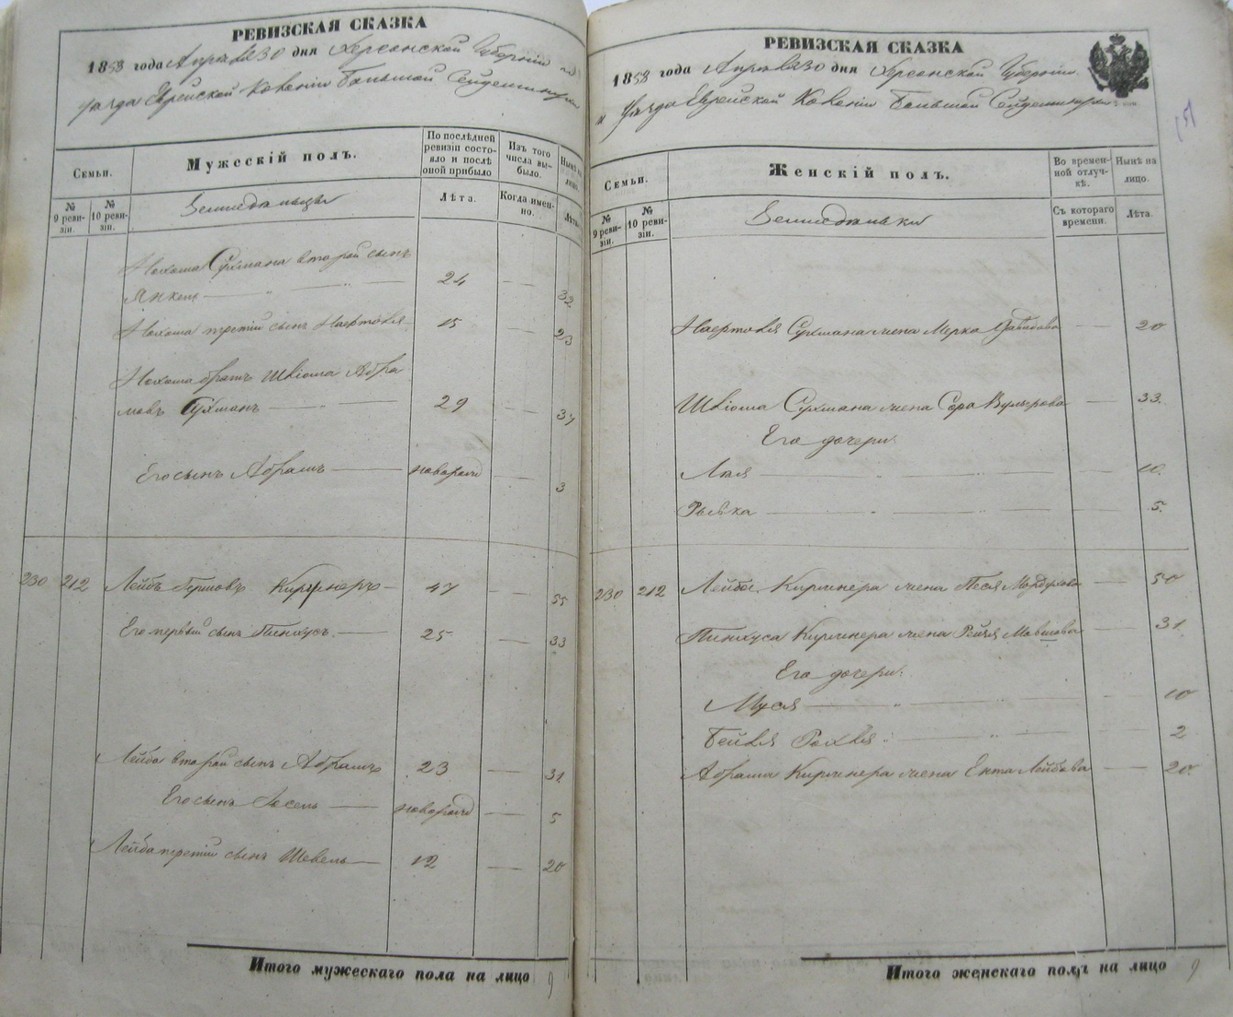 РЕВИЗСКАЯ СКАЗКА
1858 года Апреля 30 дня Херсонской Губернии
уезда Еврейской Колонии Большой Сейдеминухи
Семьи.
Мужескій полъ.
По послѣдней ревизіи состояло и послѣ оной прибыло
Изъ того числа выбыло.
Нынѣ на лицо.
№ 9 ревизіи.
№ 10 ревизіи.
Земледельцы
Лѣта.
Когда именно.
Лѣта.
Нохима Сухмана второй сынъ
Янкель 24 32
Нохима третій сынъ 15 23
Нохима братъ Абра
мовъ Сухманъ 29 37
Его сынъ Абрамъ новорожд 3
230 212 Лейбъ Гершовъ Киржнеръ 47 55
Его первый сынъ Пинхусъ 25 33
Лейба второй сынъ Абрамъ 23 31
Его сынъ новорожд 5
Лейба третій сынъ Шевель 12 20
Итого мужескаго пола на лицо 9
РЕВИЗСКАЯ СКАЗКА
1858 года Апреля 30 дня Херсонской Губерніи
и Уезда Еврейской Колоніи Большой Сейдеминухи
Семьи.
Женскій полъ.
Во временной отлучкѣ.
Нынѣ на лицо.
№ 9 ревизіи.
№ 10 ревизіи.
Земледельки
Съ котораго времени.
Лѣта.
Сухмана жена Мерка 20
Сухмана жена Сора Вульфова 33.
Его дочери:
Лея 10.
Рывка 5.
230 212 Лейбы Киржнера жена Песя 50
Пинхуса Киржнера жена Рейзя Мовшова 31
Его дочери:
Муся 10
Бейля Рохля 2
Абрама Киржнера жена Ента Лейбова 20.
Итого женскаго пола на лицо 9